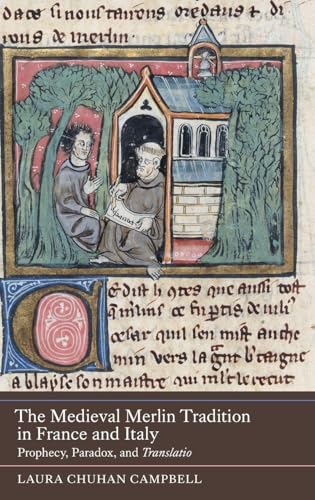 si nous tairons ore daus & di
rons de merlin.
dist li que aussi tost
ce de iuli
cesar quil sen mist auche
min vers la
a blayse son maistre qui le recut
The Medieval Merlin Tradition
in France and Italy
Prophecy, Paradox, and Translatio
LAURA CHUHAN CAMPBELL